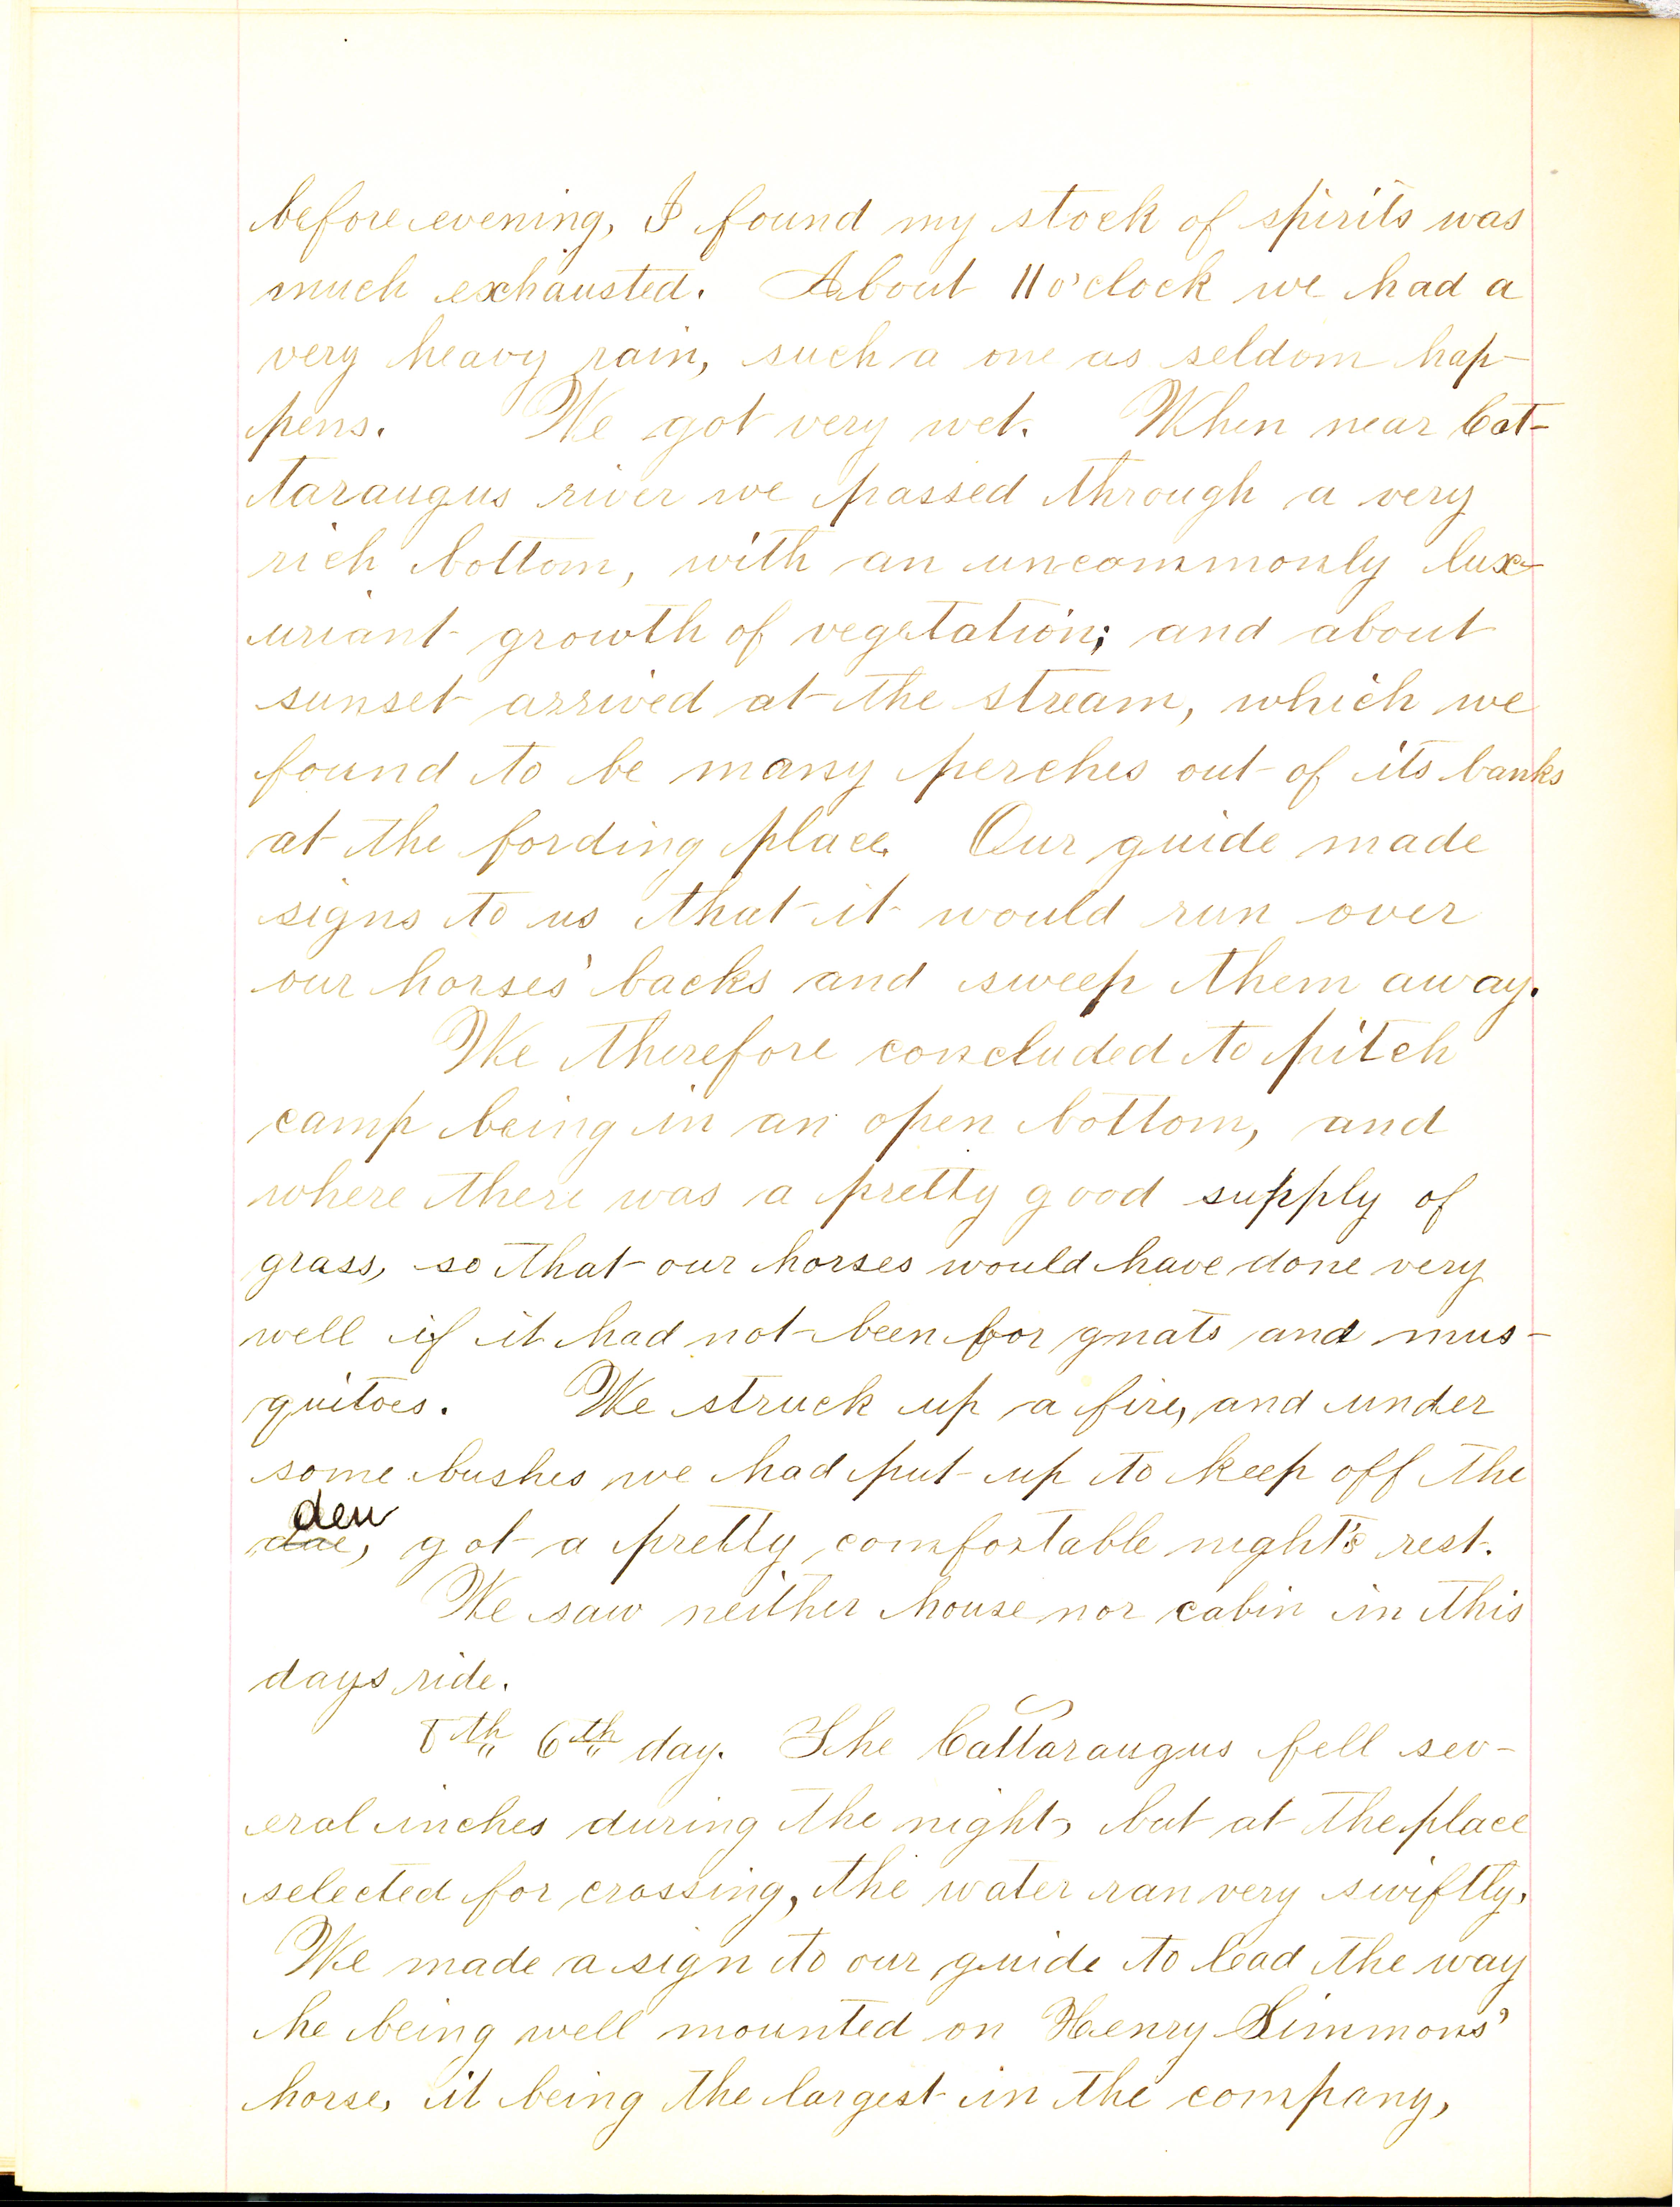 before evening, I found my stock of spirits was
much exhausted. About 11 o'clock we had a
very heavy rain, such a one as seldom hap-
pens. We got very wet. When near Cat-
taraugus river we passed through a very
rich bottom, with an uncommonly lux-
uriant growth of vegetation; and about
sunset arrived at the stream, which we
found to be many perches out of its banks
at the fording place. Our guide made
signs to us that it would run over
our horses' backs and sweep them away.
We therefore concluded to pitch
camp being in an open bottom, and
where there was a pretty good supply of
grass, so that our horses would have done very
well if it had not been for gnats and mus-
quitoes. We struck up a fire, and under
some bushes we had put up to keep off the
dew
due, got a pretty comfortable night's rest.
We saw neither house nor cabin in this
days ride.
8th 6th day. The Cattaraugus fell sev-
eral inches during the night, but at the place
selected for crossing, the water ran very swiftly.
We made a sign to our guide to lead the way
he being well mounted on Henry Simmons'
horse, it being the largest in the company,